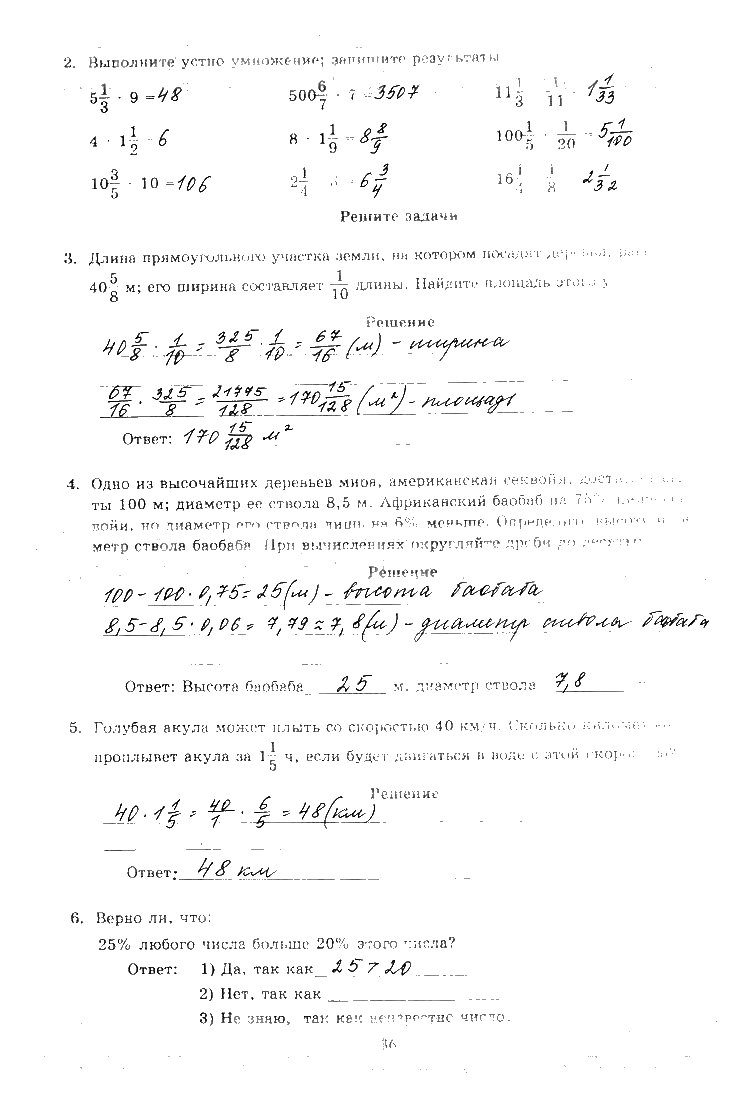 2. Выполните устно умножение; запишите результаты
5 1/3 · 9 = 48 500 6/7 · 7 = 3507 11 1/3 · 1/11 1 1/33
4 · 1 1/2 = 6 8 · 1 1/9 = 8 8/9 100 1/5 · 1/20 = 5 1/100
10 3/5 · 10 = 106 2 1/4 · = 6 3/4 16 1/4 1/8 2 1/32
Решите задачи
3. Длина прямоугольного участка земли, на котором посадят
40 5/8 м; его ширина составляет 1/10 длины. Найдите площадь
Решение
40 5/8 · 1/10 = 325/8 · 1/10 = 67/16 (м) - ширина
67/16 · 325/8 = 21775/128 = 170 15/128 (м²) - площадь
Ответ: 170 15/128 м²
4. Одно из высочайших деревьев мира, американская секвойя,
ты 100 м; диаметр ее ствола 8,5 м. Африканский баобаб на 75%
войи, но диаметр его ствола лишь на 6% меньше.
метр ствола баобаба При вычислениях округляйте дроби до
Решение
100 - 100 · 0,75 = 25 (м) - высота баобаба
8,5 - 8,5 · 0,06 = 7,79 ≈ 7,8 (м) - диаметр ствола баобаба
Ответ: Высота баобаба 25 м, диаметр ствола 7,8
5. Голубая акула может плыть со скоростью 40 км/ч. Сколько
проплывет акула за 1 1/5 ч, если будет двигаться в воде с этой
Решение
40 · 1 1/5 = 40/1 · 6/5 = 48 (км)
Ответ: 48 км
6. Верно ли, что:
25% любого числа больше 20% этого числа?
Ответ: 1) Да, так как 25 > 20
2) Нет, так как
3) Не знаю, так как неизвестно число.
36